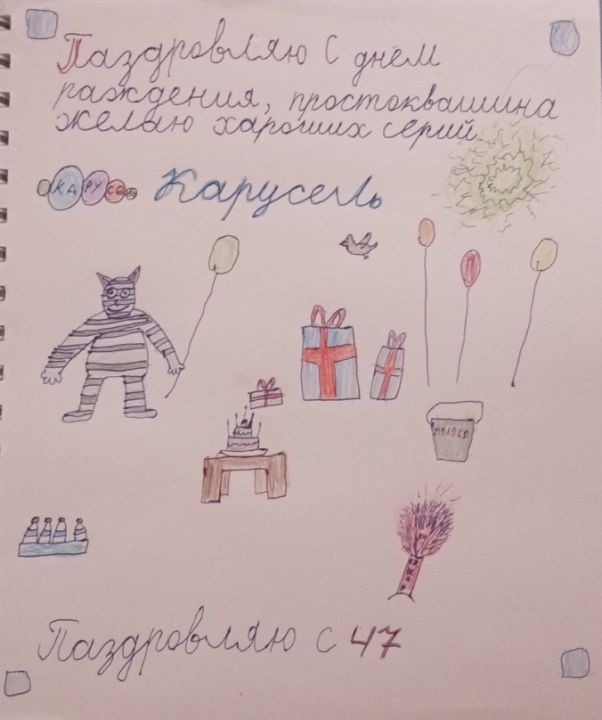 Паздровляю С днём
раждения, простоквашина
желаю хароших серий
КАРУС
Карусель
МОЛОКО
Паздровляю с 47